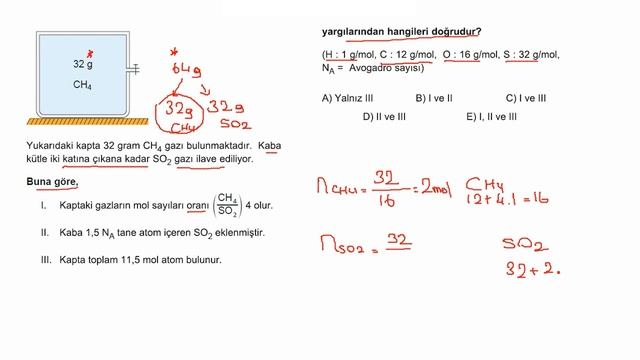 32 g
CH₄
*
*
64g
32g
CH₄
32g
SO₂
Yukarıdaki kapta 32 gram CH₄ gazı bulunmaktadır. Kaba
kütle iki katına çıkana kadar SO₂ gazı ilave ediliyor.
Buna göre,
I. Kaptaki gazların mol sayıları oranı (CH₄/SO₂) 4 olur.
II. Kaba 1,5 N_A tane atom içeren SO₂ eklenmiştir.
III. Kapta toplam 11,5 mol atom bulunur.
yargılarından hangileri doğrudur?
(H : 1 g/mol, C : 12 g/mol, O : 16 g/mol, S : 32 g/mol,
N_A = Avogadro sayısı)
A) Yalnız III B) I ve II C) I ve III
D) II ve III E) I, II ve III
n CH₄ = 32/16 = 2mol
CH₄
12+4.1=16
n SO₂ = 32
SO₂
32+2.